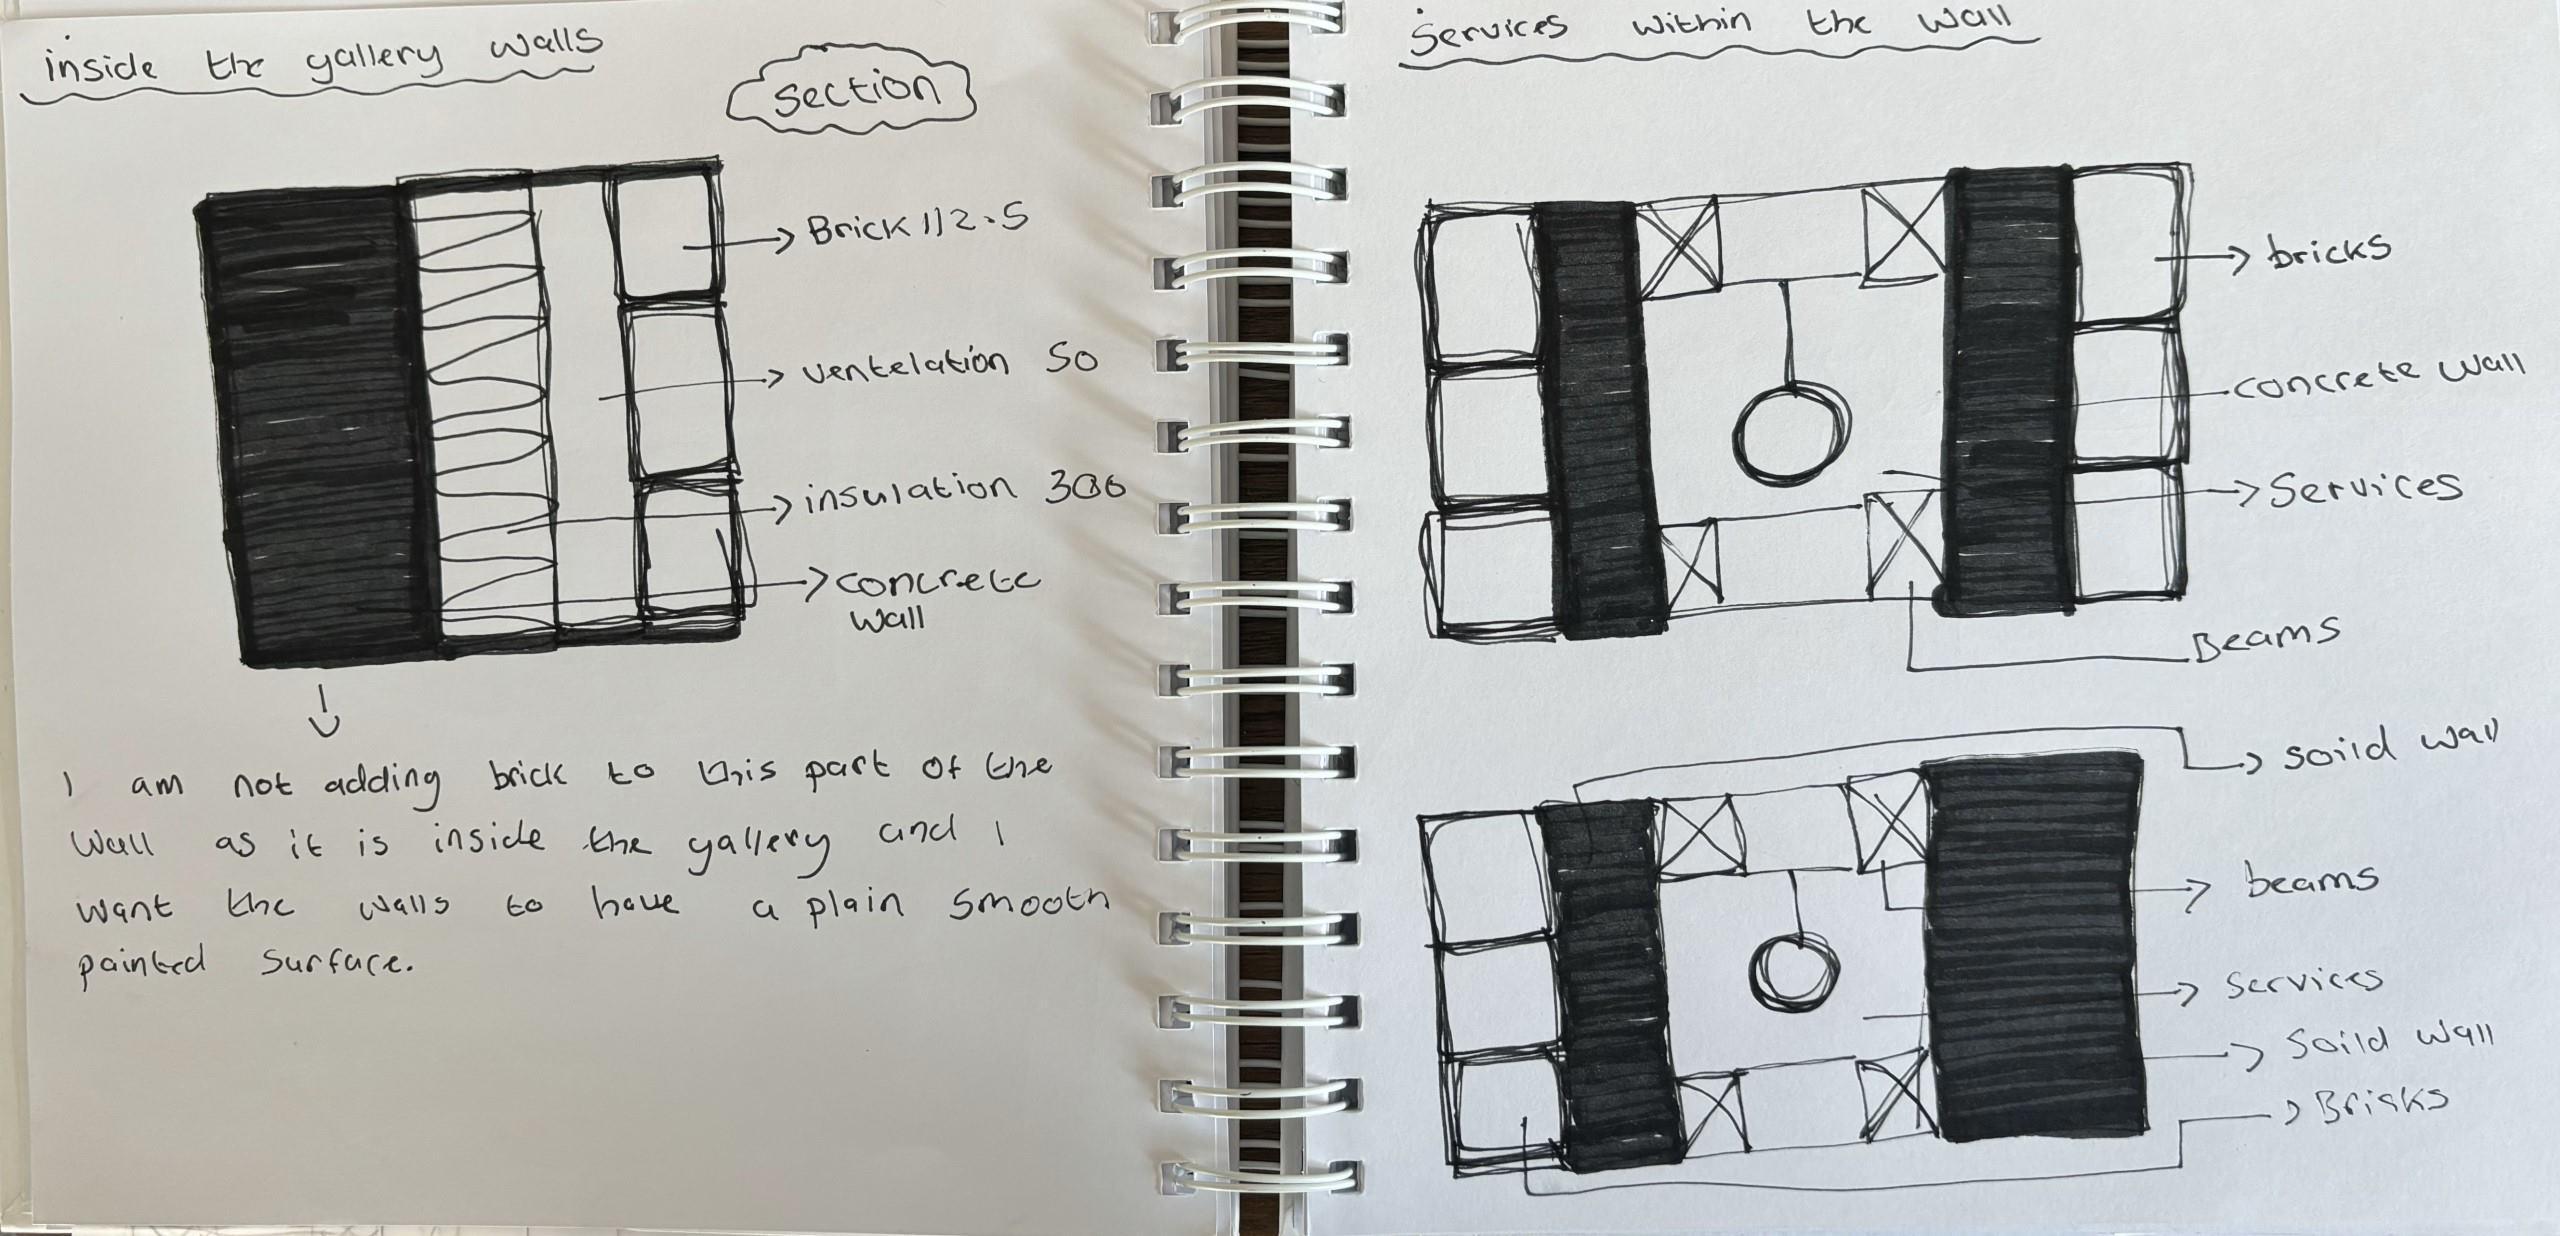 inside the gallery walls
section
Brick 112.5
ventelation 50
insulation 300
concrete
wall
I am not adding brick to this part of the
wall as it is inside the gallery and I
want the walls to have a plain smooth
painted surface.
Services within the wall
bricks
concrete wall
Services
Beams
soild wall
beams
Services
Soild wall
Brisks